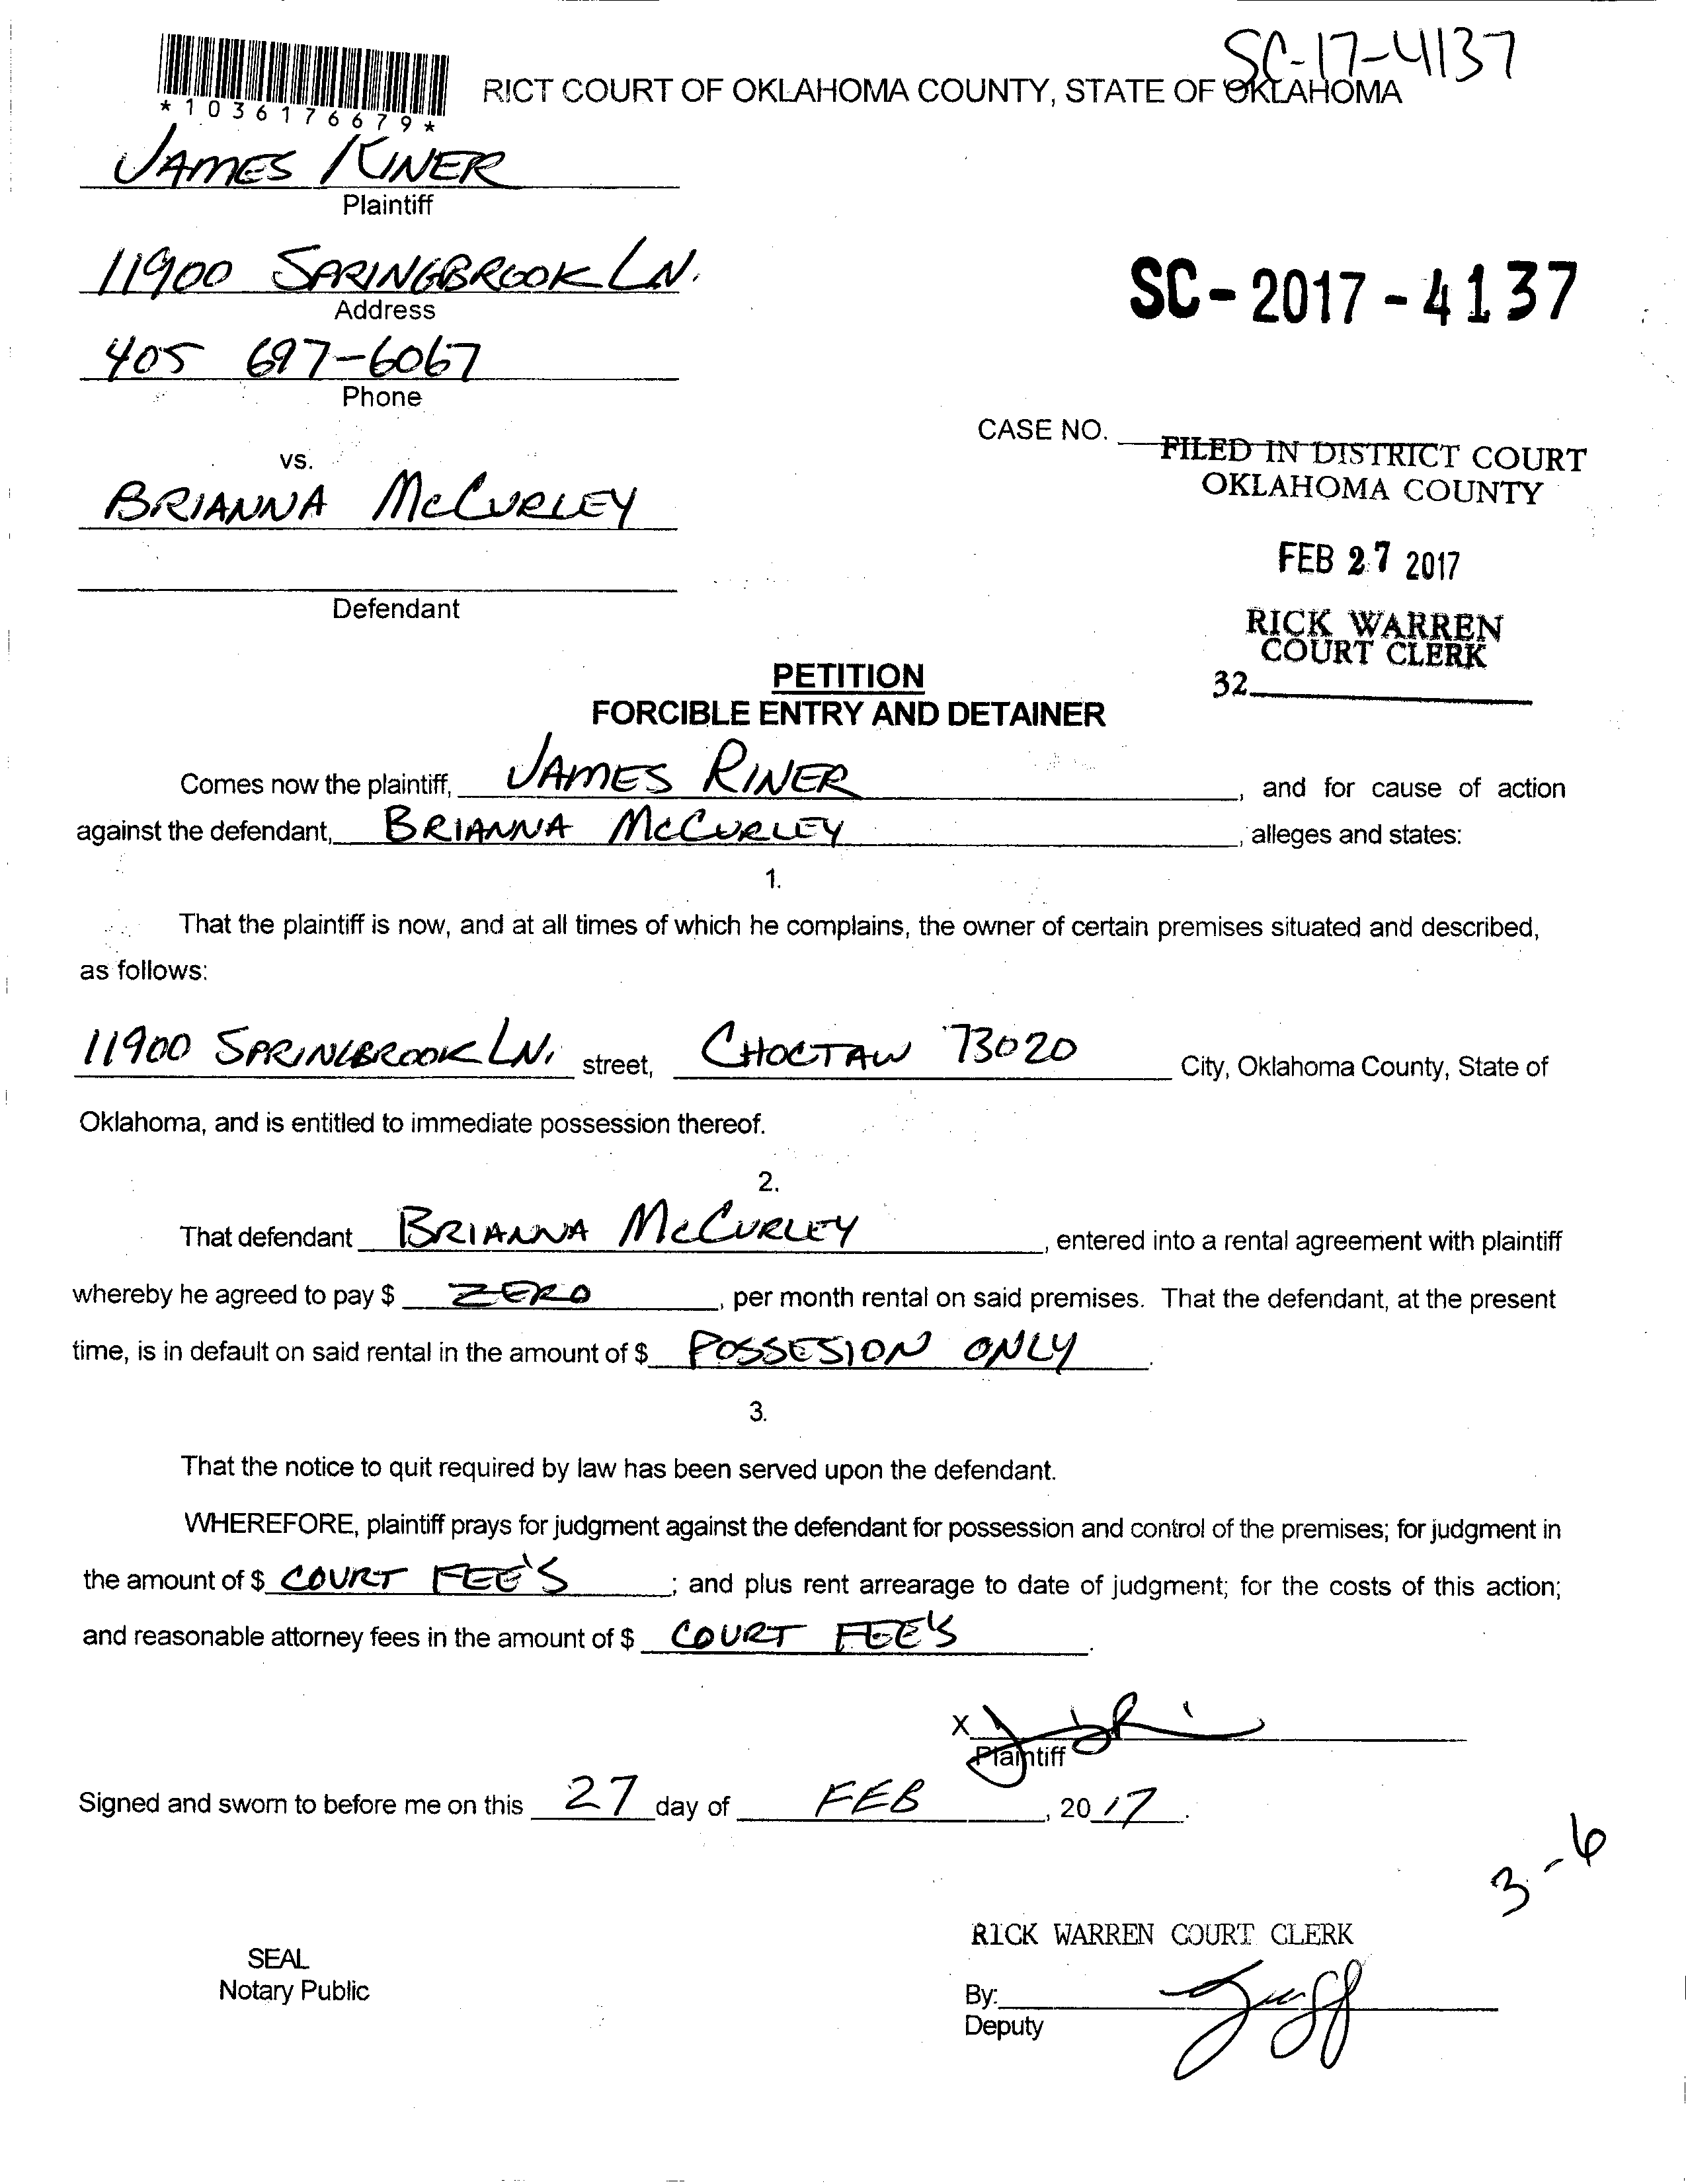 SC-17-4137
RICT COURT OF OKLAHOMA COUNTY, STATE OF OKLAHOMA
*1036176679*
JAMES RINER
Plaintiff
11900 SPRINGBROOK LN.
Address
405 697-6067
Phone
SC-2017-4137
CASE NO.
FILED IN DISTRICT COURT
OKLAHOMA COUNTY
vs.
BRIANNA McCURLEY
FEB 27 2017
Defendant
RICK WARREN
COURT CLERK
32
PETITION
FORCIBLE ENTRY AND DETAINER
Comes now the plaintiff, JAMES RINER, and for cause of action
against the defendant, BRIANNA McCURLEY, alleges and states:
1.
That the plaintiff is now, and at all times of which he complains, the owner of certain premises situated and described,
as follows:
11900 SPRINGBROOK LN. street, CHOCTAW 73020 City, Oklahoma County, State of
Oklahoma, and is entitled to immediate possession thereof.
2.
That defendant BRIANNA McCURLEY, entered into a rental agreement with plaintiff
whereby he agreed to pay $ ZERO, per month rental on said premises. That the defendant, at the present
time, is in default on said rental in the amount of $ POSSESION ONLY.
3.
That the notice to quit required by law has been served upon the defendant.
WHEREFORE, plaintiff prays for judgment against the defendant for possession and control of the premises; for judgment in
the amount of $ COURT FEE'S; and plus rent arrearage to date of judgment; for the costs of this action;
and reasonable attorney fees in the amount of $ COURT FEE'S.
X
Plaintiff
Signed and sworn to before me on this 27 day of FEB, 20 17.
3-6
RICK WARREN COURT CLERK
SEAL
Notary Public
By:
Deputy